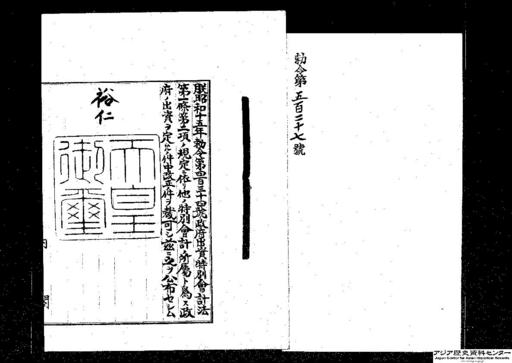 勅令第五百二十七號
朕昭和十五年勅令第四百三十四號政府出資特別會計法
第一條第二項ノ規定ニ依リ他ノ特別會計ノ所屬ト爲ス政
府ノ出資ヲ定ムル件中改正ノ件ヲ裁可シ茲ニ之ヲ公布セシム
裕仁
天皇
御璽
内
閣
アジア歴史資料センター
Japan Center for Asian Historical Records